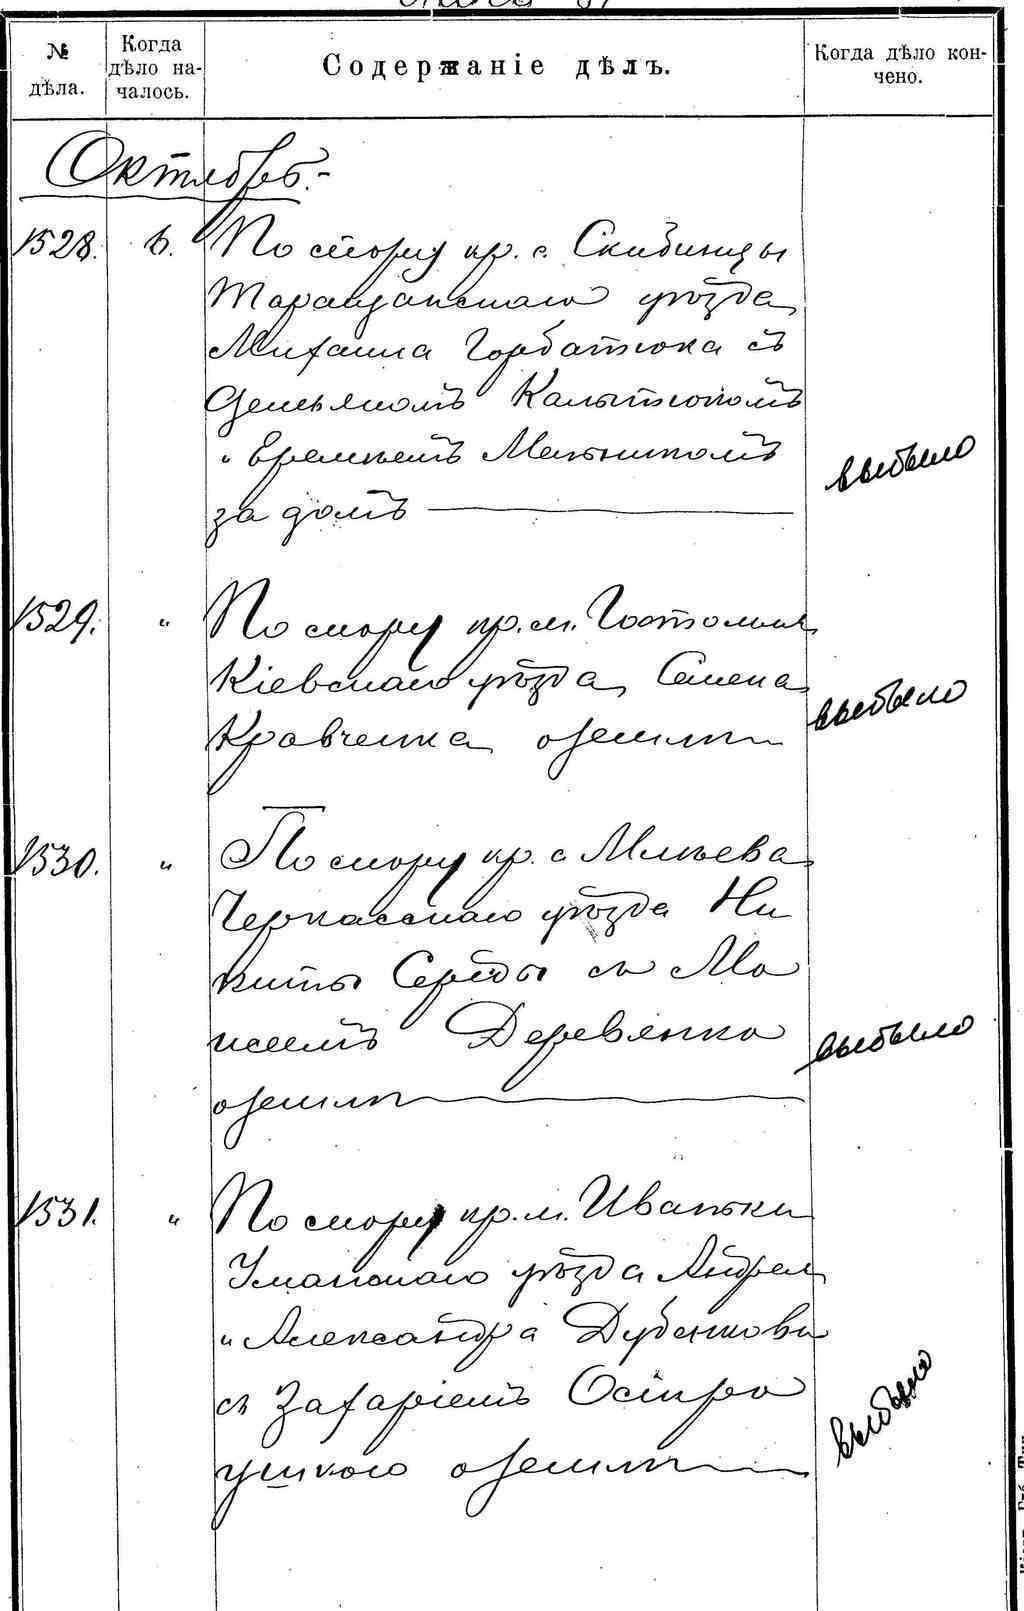 № дѣла.
Когда дѣло на-
чалось.
Содержаніе дѣлъ.
Когда дѣло кон-
чено.
Октябрь.-
1528. 6. По спору кр. с. Скибинцы
Таращанскаго уѣзда
Михаила Горбатюка съ
Демьяномъ Калытюкомъ
и Еремѣемъ Мельникомъ
за домъ
выбыло
1529. " По спору кр. м. Гостомля
Кіевскаго уѣзда Семена
Кравченка о земли
выбыло
1530. " По спору кр. с Млѣева
Черкасскаго уѣзда Ни
киты Середы съ Мо
исеемъ Деревянко
о земли
выбыло
1531. " По спору кр. м. Иваньки
Уманскаго уѣзда Андрея
и Александра Дубенкови
съ Захаріемъ
о земли
выбыло